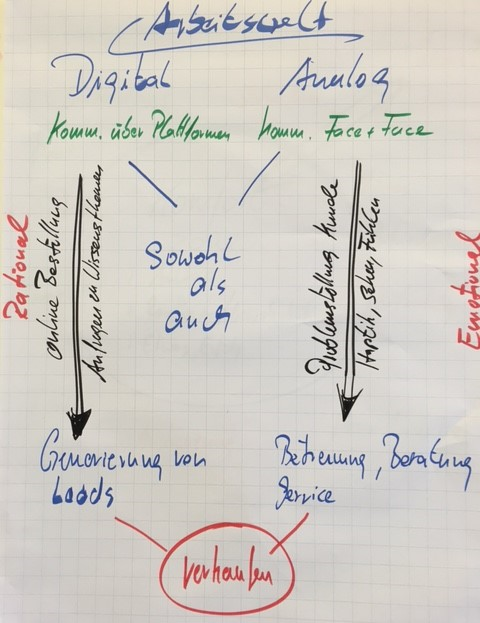 Arbeitswelt
Digital
Analog
Komm. über Plattformen
Komm. Face + Face
Rational
online Bestellung
Anfragen zu Wissensthemen
Sowohl
als
auch
Problemstellung Kunde
Haptik, sehen, fühlen
Emotional
Generierung von
Leads
Betreuung, Beratung
Service
verkaufen